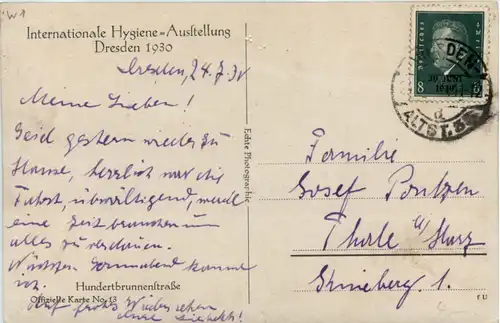 W1
Internationale Hygiene=Ausstellung
Dresden 1930
Dresden, 24.7.30
Meine Lieben!
Seid gestern wieder zu
Hause, herrlich war die
Fahrt, überwältigend, werde
eine Zeit brauchen um
alles zu verdauen.
Nächsten Sonnabend komme
ich.
Auf frohes Wiedersehen
Hundertbrunnenstraße
Offizielle Karte Nr. 13
Echte Photographie
8
30. JUNI
1930
ALTST.
Familie
Josef
Thale a/Harz
1.